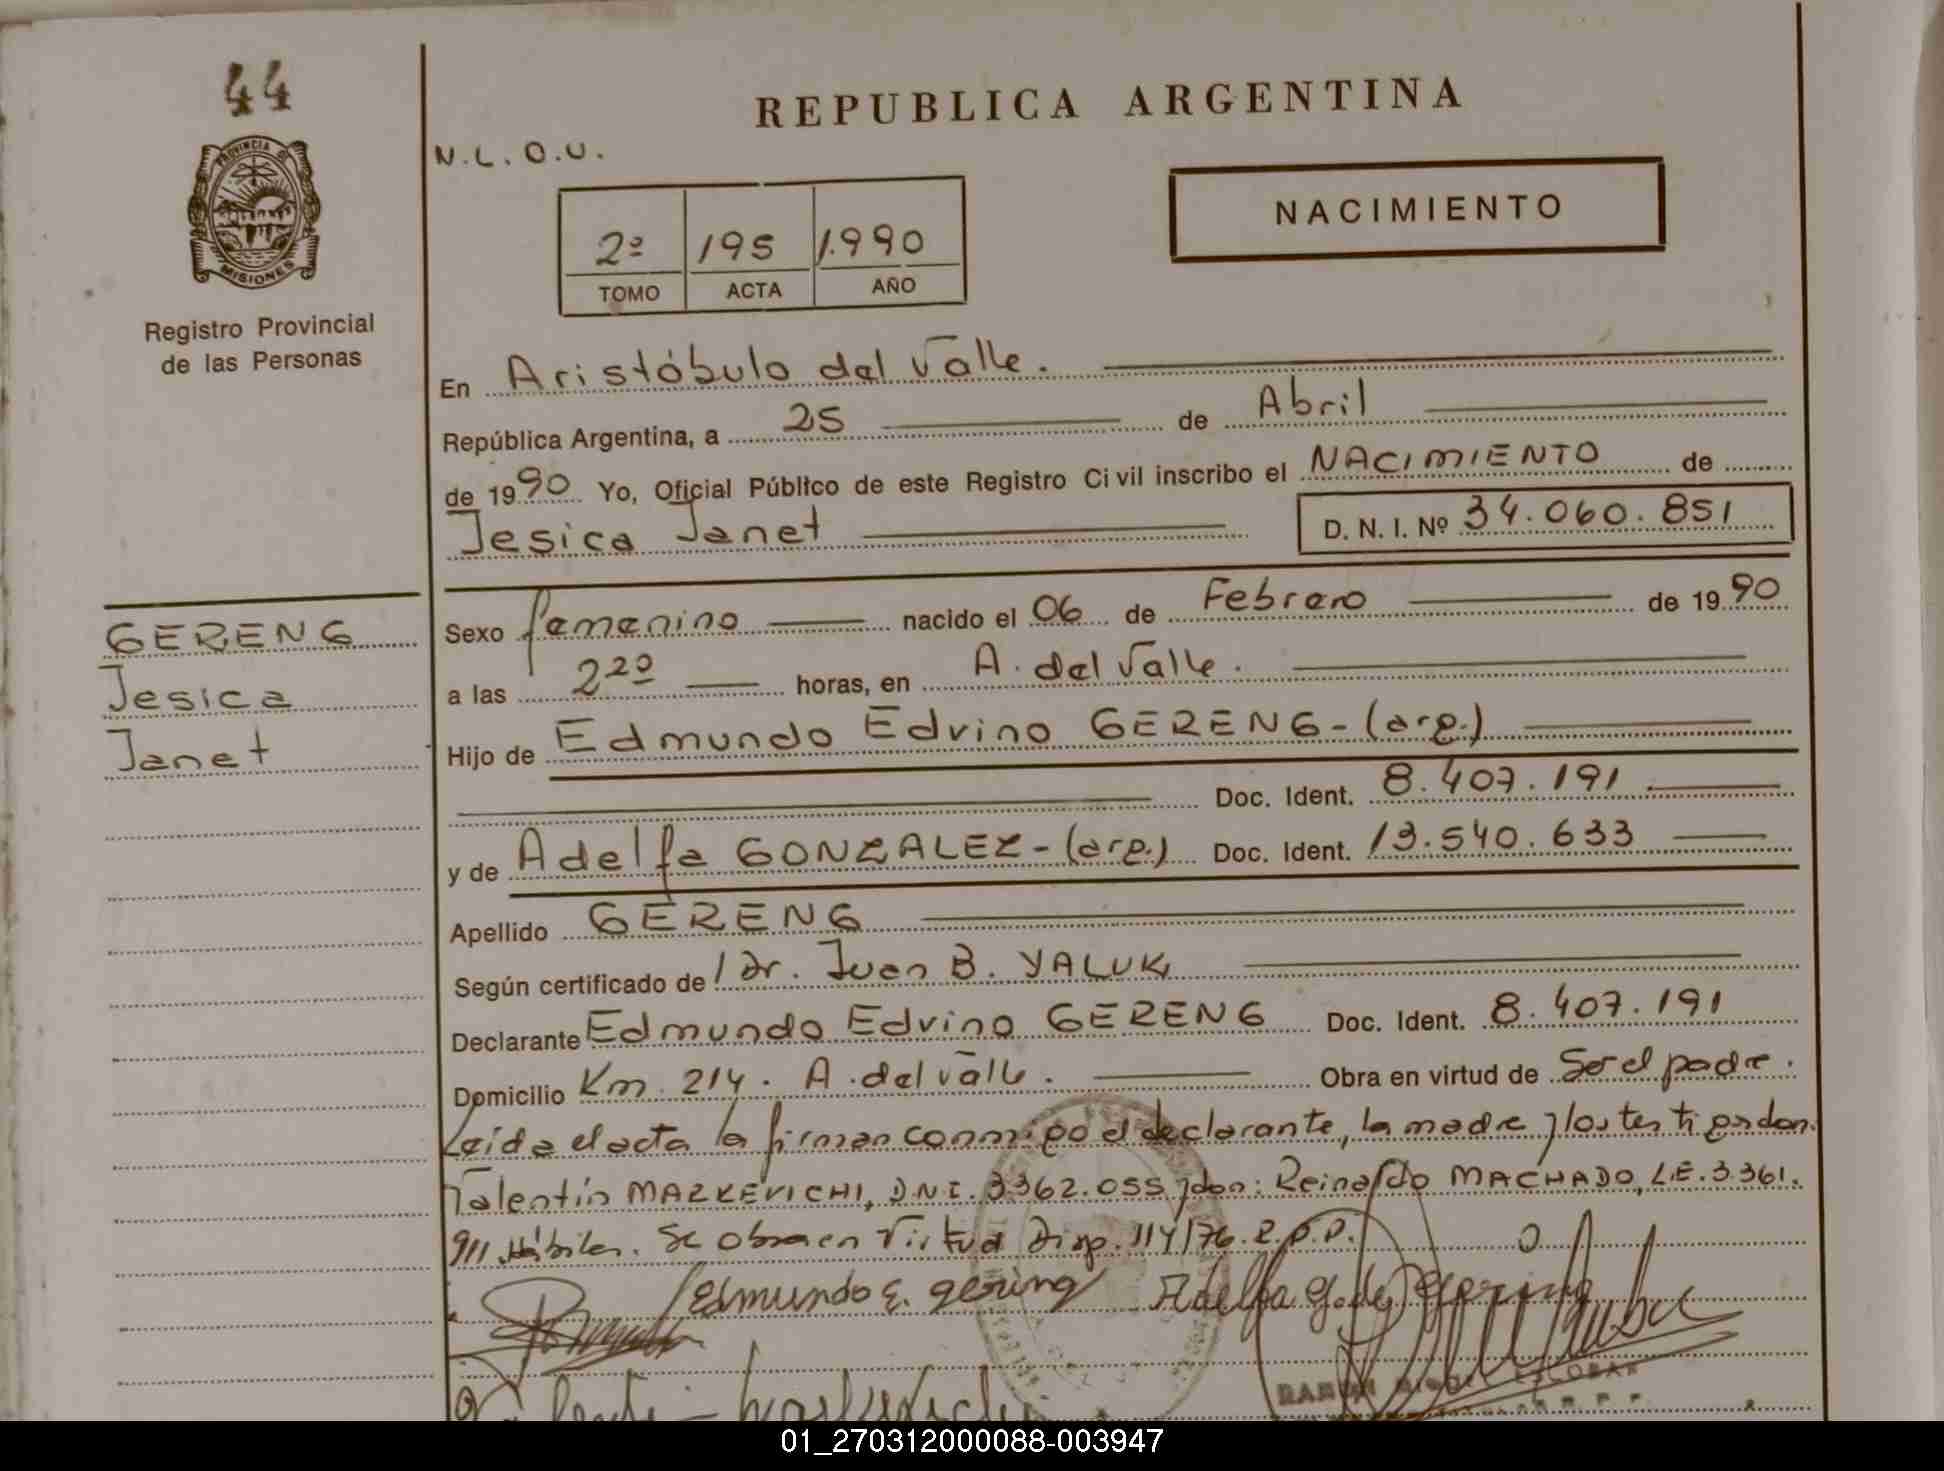 44
PROVINCIA DE
MISIONES
Registro Provincial
de las Personas
GERENG
Jesica
Janet
REPUBLICA ARGENTINA
N.L.O.U.
2º 195 1.990
TOMO ACTA AÑO
NACIMIENTO
En Aristóbulo del Valle.
República Argentina, a 25 de Abril
de 1990 Yo, Oficial Público de este Registro Civil inscribo el NACIMIENTO de
Jesica Janet D. N. I. Nº 34.060.851
Sexo femenino nacido el 06 de Febrero de 1990
a las 2²⁰ horas, en A. del Valle.
Hijo de Edmundo Edvino GERENG - (arg.)
Doc. Ident. 8.407.191
y de Adelfa GONZALEZ - (arg.) Doc. Ident. 13.540.633
Apellido GERENG
Según certificado de Dr. Juan B. YALUK
Declarante Edmundo Edvino GERENG Doc. Ident. 8.407.191
Domicilio Km. 214. A. del Valle. Obra en virtud de Ser el padre.
Leída el acta la firman conmigo el declarante, la madre y los testigos don.
Valentín MAZKEVICHI, D.N.I. 3362.055 y don: Reinaldo MACHADO, L.E. 3.361.
911 hábiles. Se obra en Virtud Disp. 114/76. R.P.P.
Edmundo E. gering Adelfa G. de gering
ESCOBAR
01_270312000088-003947